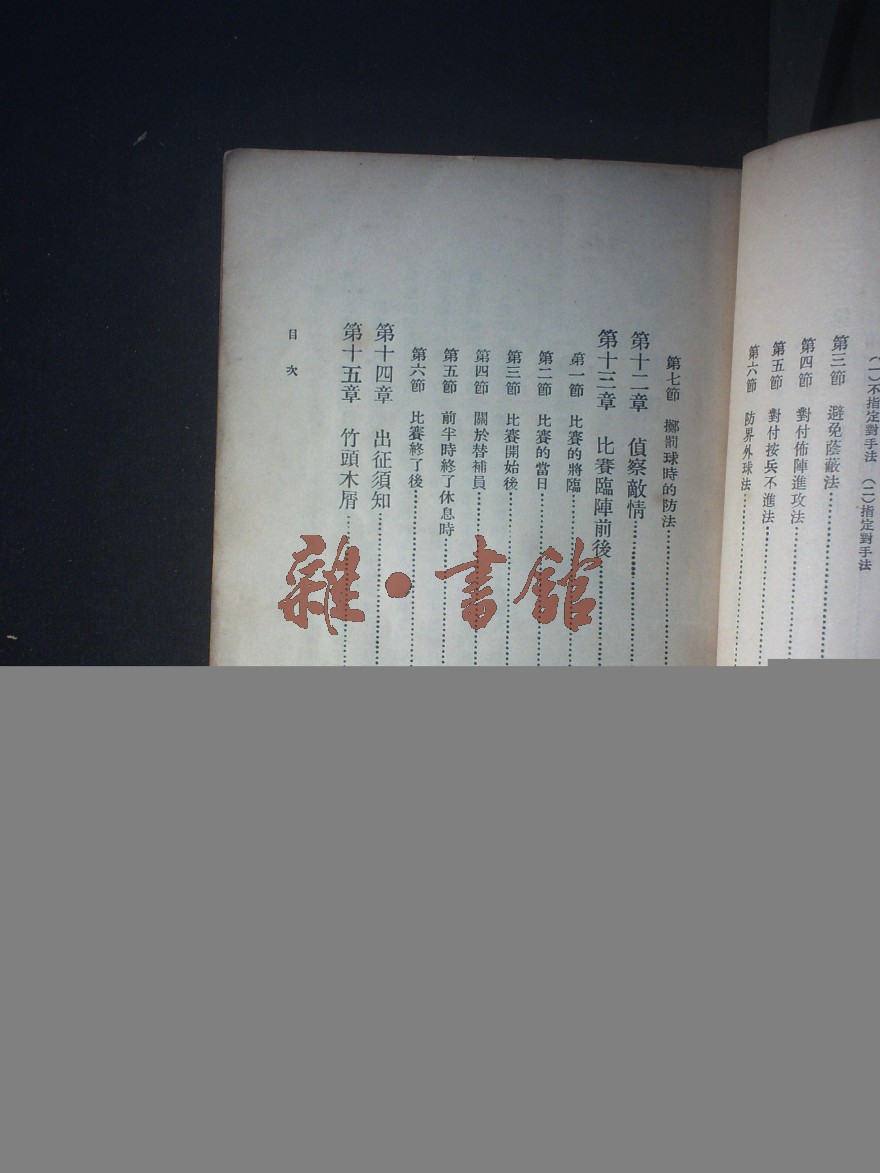 （一）不指定對手法　（二）指定對手法
第三節　避免蔭蔽法
第四節　對付佈陣進攻法
第五節　對付按兵不進法
第六節　防界外球法
第七節　擲罰球時的防法
第十二章　偵察敵情
第十三章　比賽臨陣前後
第一節　比賽的將臨
第二節　比賽的當日
第三節　比賽開始後
第四節　關於替補員
第五節　前半時終了休息時
第六節　比賽終了後
第十四章　出征須知
第十五章　竹頭木屑
目次
雜·書館